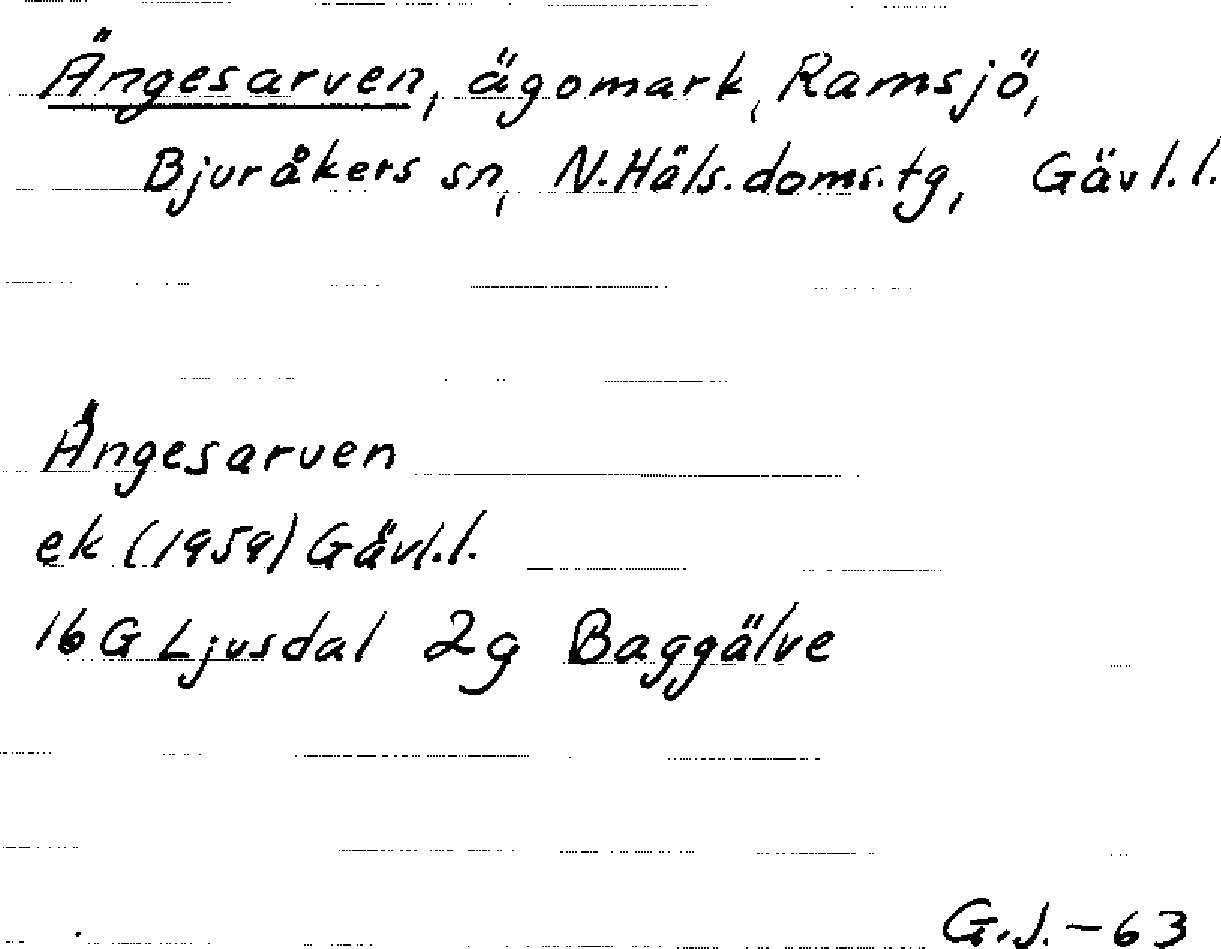 Ängesarven, ägomark, Ramsjö,
Bjuråkers sn, N.Häls.doms.tg, Gävl.l.
Ängesarven
ek (1959) Gävl.l.
16 G Ljusdal 2g Baggälve
G.J.-63